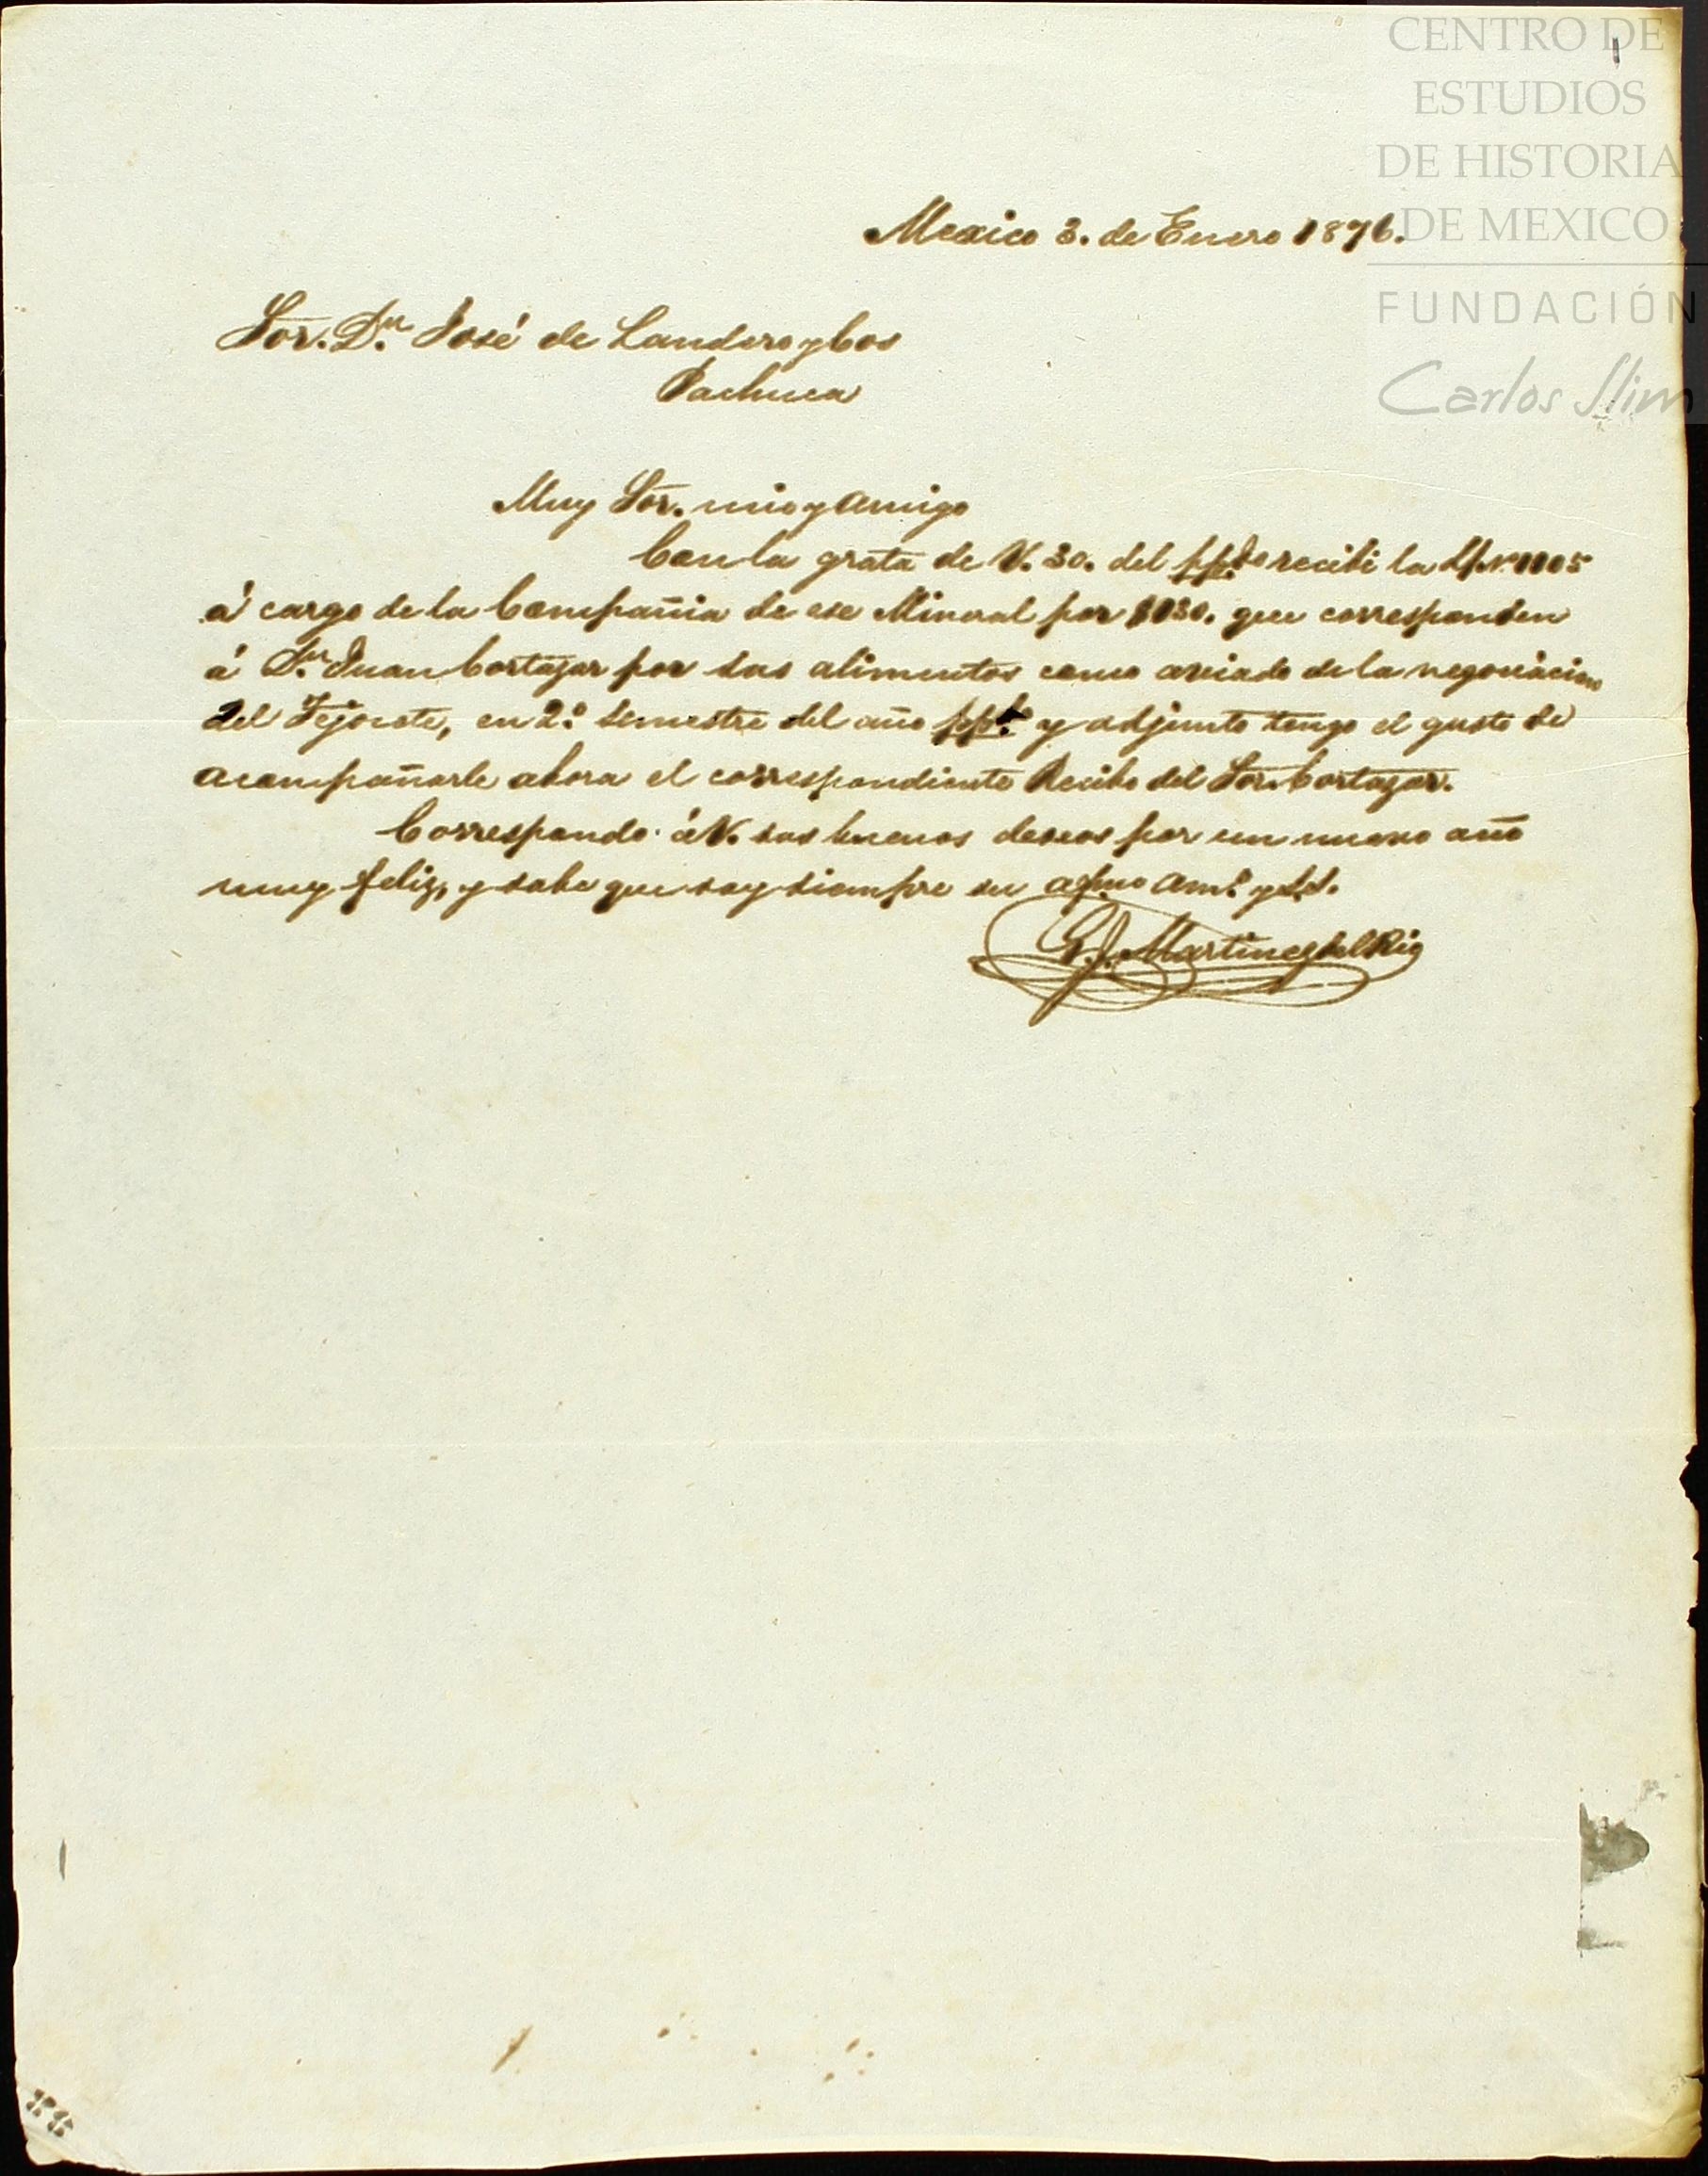 CENTRO DE
ESTUDIOS
DE HISTORIA
DE MEXICO
FUNDACIÓN
Carlos Slim
Mexico 3. de Enero 1876.
Sor. Dn. José de Landero y Cos
Pachuca
Muy Sor. mio y amigo
Con la grata de V. 30. del pp.do recibi la
á cargo de la Compañia de ese Mineral por que corresponden
á Dn. Juan Cortazar por sus alimentos como aviado de la negociacion
del Tejocote, en 2.º semestre del año pp.º y adjunto tengo el gusto de
acompañarle ahora el correspondiente Recibo del Sor. Cortazar.
Correspondo á V. sus buenos deseos por un nuevo año
muy feliz, y sabe que soy siempre su afmo am.º y S.S.
Martinez del Rio